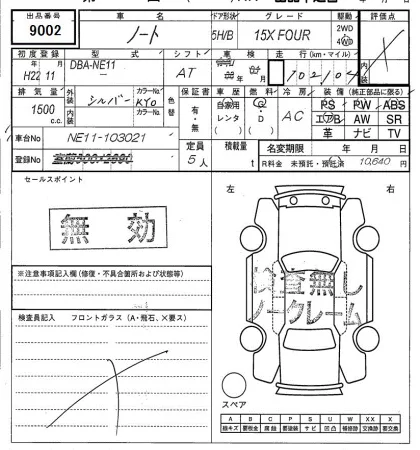 出品番号 車名 ドア形状 グレード 駆動 評価点
9002 ノート 5H/B 15X FOUR 2WD 4WD
初度登録 型式 シフト 車検 走行(km・マイル) 内装
年 月 年 月
H22 11 DBA-NE11 AT 102,104
排気量 外装 カラーNo. 色替 保証書 車歴 燃料 冷房 装備(純正部品に限る)
1500 c.c. 内装 シルバー KY0 カラーNo. 有・無 自家用 レンタ ( ) G・D ( ) AC PS PW ABS
エアB AW SR
革 ナビ TV
車台No NE11-103021
定員 積載量 名変期限 年 月 日
登録No 5人 t R料金 未預託・預託済 10,640 円
セールスポイント
無効
左 右
※注意事項記入欄(修復・不具合箇所および状態等)
検査無し
ノークレーム
検査員記入 フロントガラス(A・飛石、×要ス)
スペア
A B C P S U W X XX